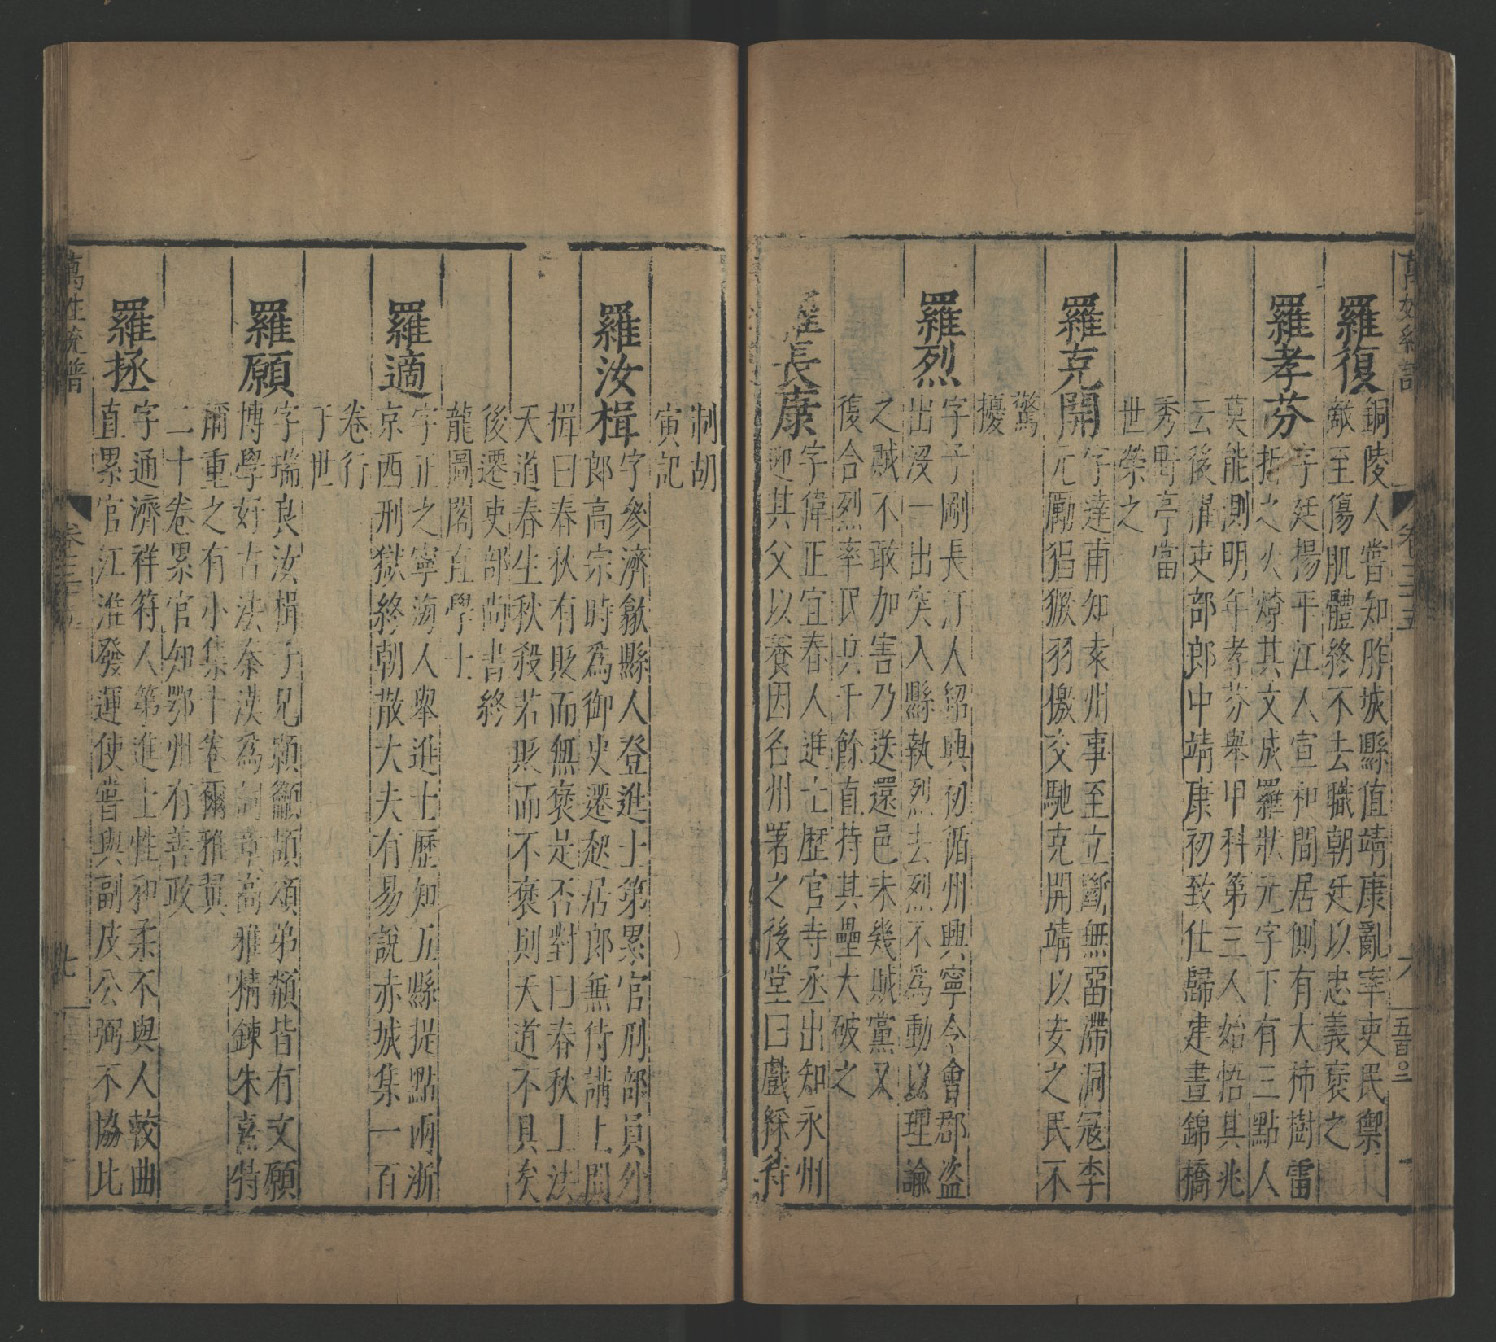 萬姓統譜
卷三十五
六
五百〇二
羅復
銅陵人嘗知胙城縣值靖康亂率吏民禦
敵至傷肌體終不去職朝廷以忠義褒之
羅孝芬
字廷揚平江人宣和間居側有大柿樹雷
折之火燎其文成羅狀元字下有三點人
莫能測明年孝芬舉甲科第三人始悟其兆
云後擢吏部郎中靖康初致仕歸建晝錦橋
秀野亭當
世榮之
羅克開
字達甫知泰州事至立斷無留滯洞寇李
元勵猖獗羽檄交馳克開靖以安之民不
驚
擾
羅烈
字子剛長汀人紹興初循州興寧令會郡盜
出沒一出突入縣執烈去烈不為動以理諭
之賊不敢加害乃送還邑未幾賊黨又
復合烈率民兵千餘直持其壘大破之
羅長康
字偉正宜春人進士歷官寺丞出知永州
迎其父以養因名州署之後堂曰戲綵待
制胡
寅記
羅汝楫
字彥濟歙縣人登進士第累官刑部員外
郎高宗時爲御史遷起居郎兼侍講上問
楫曰春秋有貶而無褒是否對曰春秋上法
天道春生秋殺若貶而不褒則天道不具矣
後遷吏部尚書終
龍圖閣直學士
羅適
字正之寧海人舉進士歷知五縣提點兩浙
京西刑獄終朝散大夫有易說赤城集一百
卷行
于世
羅願
字瑞良汝楫子兄顥籲頡頌弟頖皆有文願
博學好古法秦漢爲詞章高雅精鍊朱熹特
爾重之有小集十卷爾雅翼
二十卷累官知鄂州有善政
羅拯
字通濟祥符人第進士性和柔不與人較曲
直累官江淮發運使嘗與副皮公弼不協比
萬姓統譜
卷三十五
七